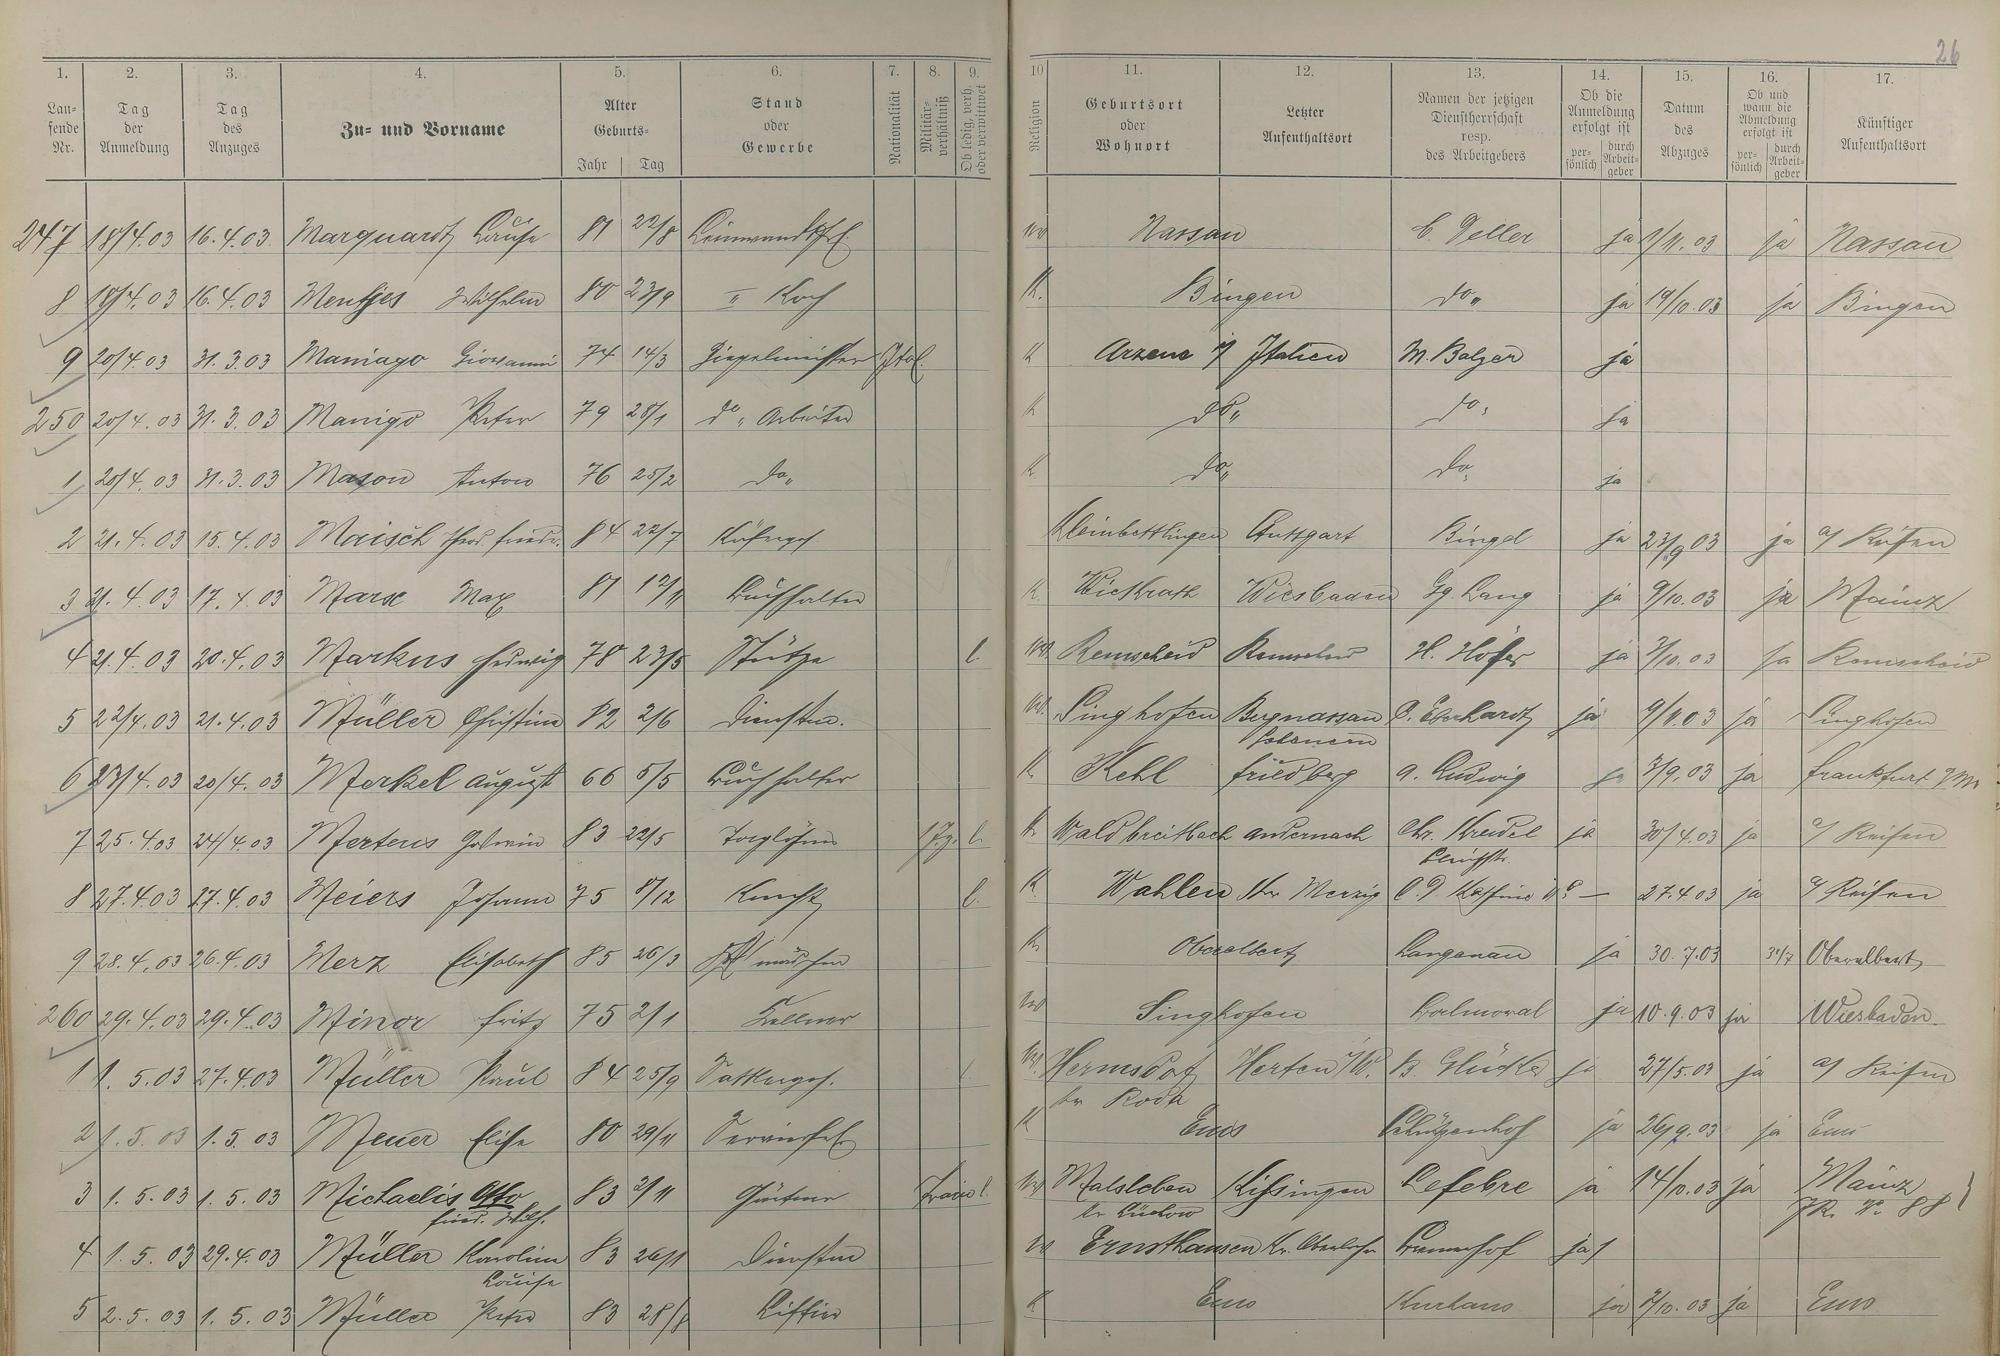 26
1. 2. 3. 4. 5. 6. 7. 8. 9. 10 11. 12. 13. 14. 15. 16. 17.
Lau-
fende
Nr.
Tag
der
Anmeldung
Tag
des
Anzuges
Zu- und Vorname
Alter
Geburts-
Jahr Tag
Stand
oder
Gewerbe
Nationalität
Militär-
verhältniß
Ob ledig, verh.
oder verwittwet
Religion
Geburtsort
oder
Wohnort
Letzter
Aufenthaltsort
Namen der jetzigen
Dienstherrschaft
resp.
des Arbeitgebers
Ob die
Anmeldung
erfolgt ist
per-
sönlich
durch
Arbeit-
geber
Datum
des
Abzuges
Ob und
wann die
Abmeldung
erfolgt ist
per-
sönlich
durch
Arbeit-
geber
Künftiger
Aufenthaltsort
247 18/4.03 16.4.03. Marquardt Louise 81 22/8 Nassau ja 1/11.03 ja Nassau
8 18/4.03 16.4.03 Mentjes Wilhelm 80 23/9 " Koch K. Bingen do " ja 19/10.03 ja Bingen
9 20/4.03 31.3.03 Maniago Giovanni 74 14/3 Ziegelmeister Ital. K Arzene i/ Italien M. Balzer ja
250 20/4.03 31.3.03 Manigo Peter 79 28/1 do " Arbeiter K do " do " ja
1 20/4.03 31.3.03 Mason Anton 76 25/2 do " K do " do " ja
2 21.4.03 15.4.03 Maisch Theod. Friedr. 84 22/7 Küfergh Kleinbettlingen Stuttgart Bingel ja 23/9 03 ja a/ Reisen
3 21.4.03 17.4.03 Marx Max 81 12/11 Buchhalter K. Wickrath Wiesbaden Gg. Lang ja 9/10.03 ja Mainz
4 21.4.03 20.4.03 Markus Hedwig 78 23/5 Stütze l. Remscheid Remscheid H. Höfer ja 3/10.03 ja Remscheid
5 22/4.03 21.4.03 Müller Christine 82 2/6 Dienstm. Singhofen Bergnassau P. Eberhardt ja 9/11.03 ja Singhofen
6 23/4.03 20/4.03 Merkel August 66 5/5 Buchhalter K Kehl Friedberg A. Ludwig ja 3/9.03 ja Frankfurt a/M
7 25.4.03 24/4.03 Mertens 83 22/5 Taglöhner l. K. Waldbreitbach Andernach Chr. Kreidel ja 30/4.03 ja a/ Reisen
8 27.4.03 27.4.03 Meiers Johann 75 8/12 Knecht l. K Wahlen Kr. Merzig — 27.4.03 ja a/ Reisen
9 28.4.03 26.4.03 Merz Elisabeth 85 26/3 mädchen K. Oberelbert Langenau ja 30.7.03 31/7 Oberelbert
260 29.4.03 29.4.03 Minor Fritz 75 2/1 Kellner Singhofen Balmoral ja 10.9.03 ja Wiesbaden
1 1.5.03 27.4.03 Müller Paul 84 25/9 Sattlergh. l. Hermsdorf Herten i/W. B. Glücker ja 27/5.03 ja a/ Reisen
br Roda
2 1.5.03 1.5.03 Meuer Elise 80 29/11 K Ems Schützenhof ja 26/9.03 ja Ems
3 1.5.03 1.5.03 Michaelis Otto 83 2/11 Gärtner Train l. Malsleben Kissingen Lefebre ja 14/10.03 ja Mainz
Fried. Wilh. br Lüchow JR. No 88
4 1.5.03 29.4.03 Müller Karoline 83 26/11 Dienstm Ernsthausen Kr. Oberlahn ja
Louise
5 2.5.03 1.5.03 Müller Peter 83 28/8 Liftier K Ems Kurhaus ja 7/10.03 ja Ems